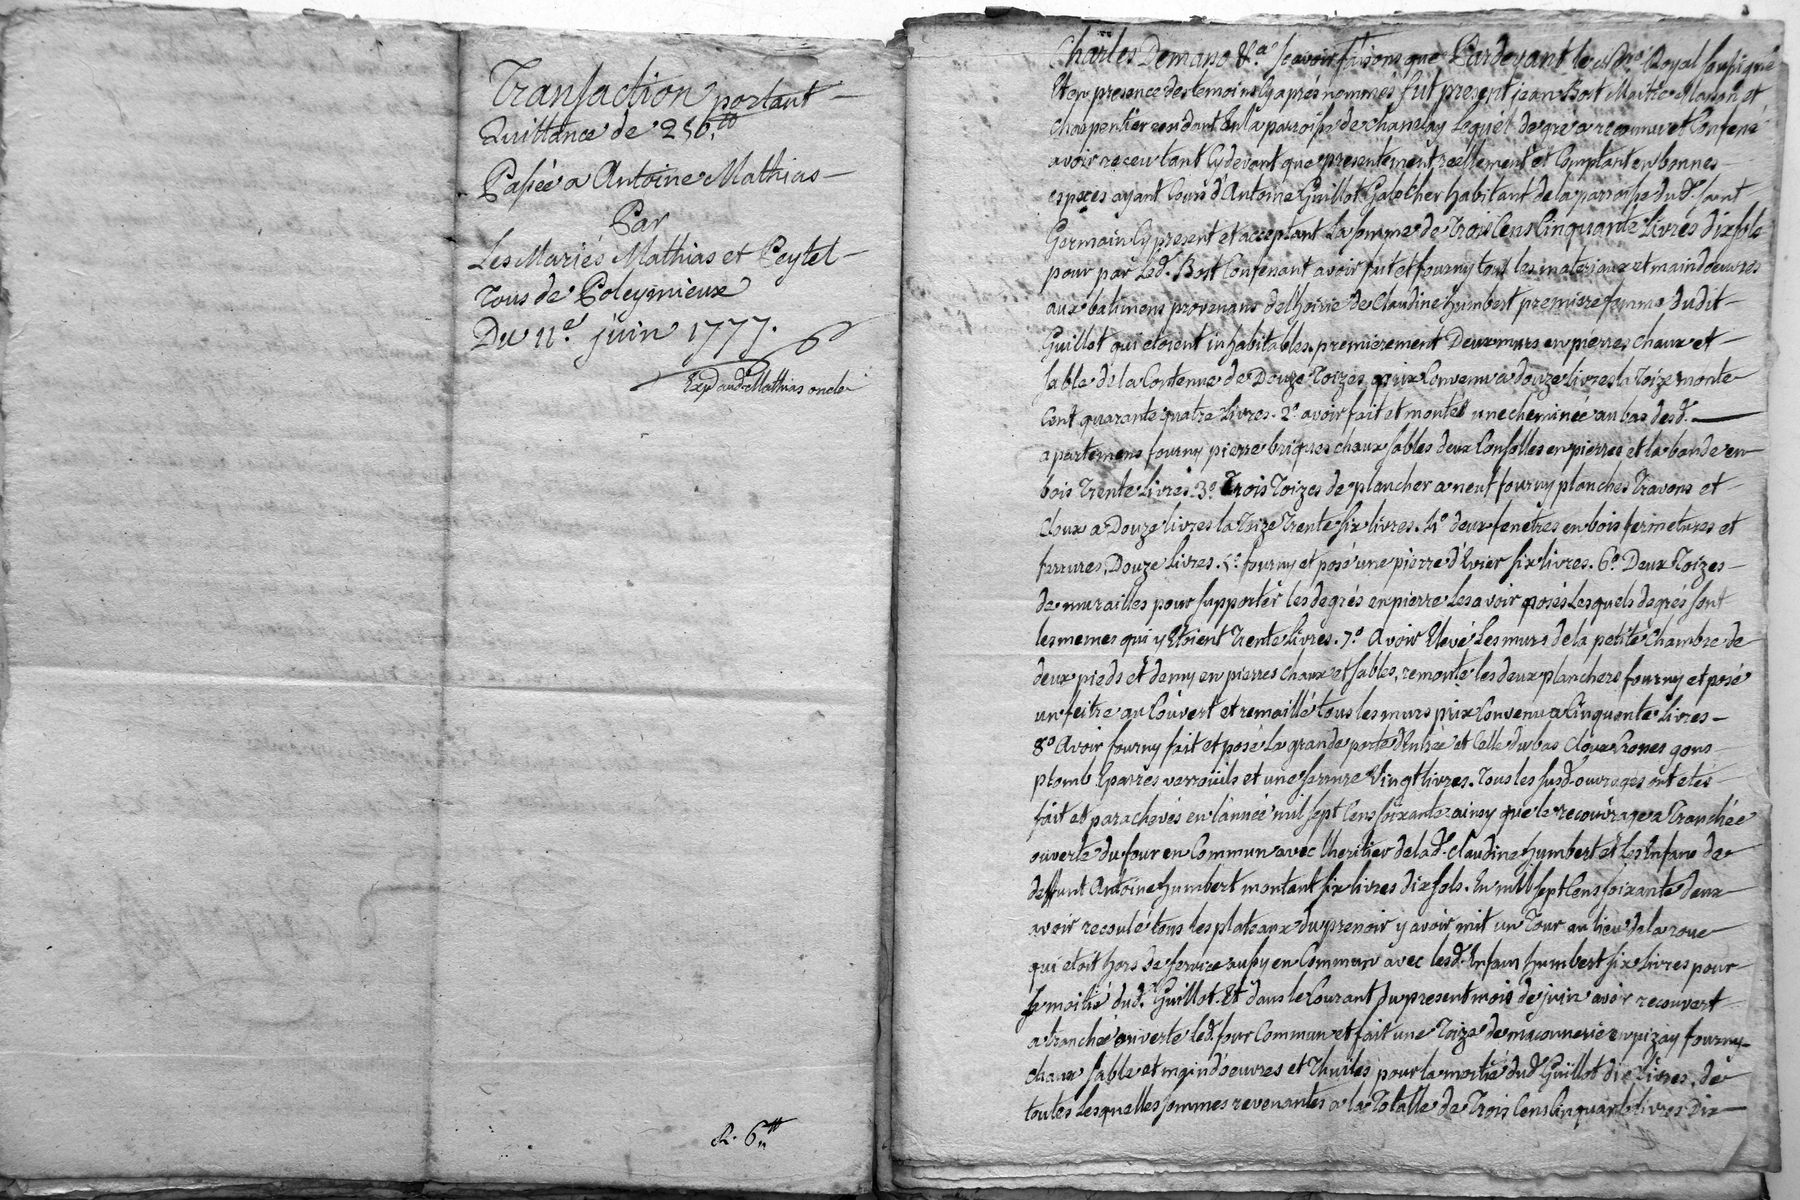 Transaction portant
Quittance de 256.tt
Passée a Antoine Mathias
Par
Les Mariés Mathias et Peytel
Tous de Poleymieux
Du 11e. juin 1777.
Exp. aud. Mathias oncle
R. 6.tt
Charles Demano &.a scavoir faisons que Pardevant le Nre. Royal soussigné
Et en presence des temoins cy après nommés fut present jean Bost Maitre Masson et
charpentier residant En la parroisse de chasselay Lequel de gré a reconnu et Confessé
avoir receu tant Cy devant que presentement reellement et Comptant en bonnes
espèces ayant Cours d'Antoine Guillot Galocher habitant de la parroisse dud. saint
Germain Cy present et acceptant La somme de Trois Cens Cinquante Livres dix sols
pour par Led. Bost Confessant avoir fait et fourny tous les materiaux et maind'oeuvres
aux batimens provenans de lhoirie de Claudine humbert premiere femme dudit
Guillot qui etoient inhabitables, premierement Deux murs en pierres, chaux et
sable de la Contenue de Douze Toizes, a prix Convenu a douze livres la Toize monte
Cent quarante quatre Livres. 2° avoir fait et montés une cheminée au bas desd.
apartemens fourny pierre briques chaux sables deux Consolles en pierres et la bande en
bois Trente Livres. 3° Trois Toizes de plancher a neuf fourny planches Travons et
cloux a Douze livres la Toize Trente six livres. 4° deux fenetres en bois fermetures et
ferrures, Douze Livres. 5° fourny et posé une pierre d'Evier six livres. 6° Deux Toizes
de murailles pour supporter les degrés en pierre Les avoir posés Lesquels degrés sont
les memes qui y Etoient Trente Livres. 7° Avoir Elevé Les murs de la petite Chambre de
deux pieds et demy en pierres chaux et sables, remonté les deux planchers fourny et posé
un feitre au Couvert et remaillé tous les murs prix Convenu a Cinquante Livres
8° Avoir fourny fait et posé La grande porte d'Entrée et Celle du bas cloux gons
plomb Eparres verroüils et une serrure Vingt livres. Tous les susd. ouvrages ont etés
fait et parachevés en l'année mil sept Cens soixante ainsy que le recouvrage a Tranchée
ouverte du four en Commun avec lheritier de lad. Claudine humbert et les Enfans de
deffunt Antoine humbert montant six livres dix sols. En mil sept Cens soixante deux
avoir recoulé tous les plateaux du pressoir y avoir mit un Tour au lieu de la roue
qui etoit hors de service aussy en Commun avec lesd. Enfans humbert six Livres pour
La moitié dud. Guillot. Et dans le Courant du present mois de juin avoir recouvert
a tranchée ouverte led. four Commun et fait une Toize de maçonnerie en pizay fourny
chaux sable et maind'oeuvres et Thuiles pour la moitié dud. Guillot dix Livres, de
toutes Lesquelles sommes revenantes a la Totalle de Trois Cens Cinquante livres Dix